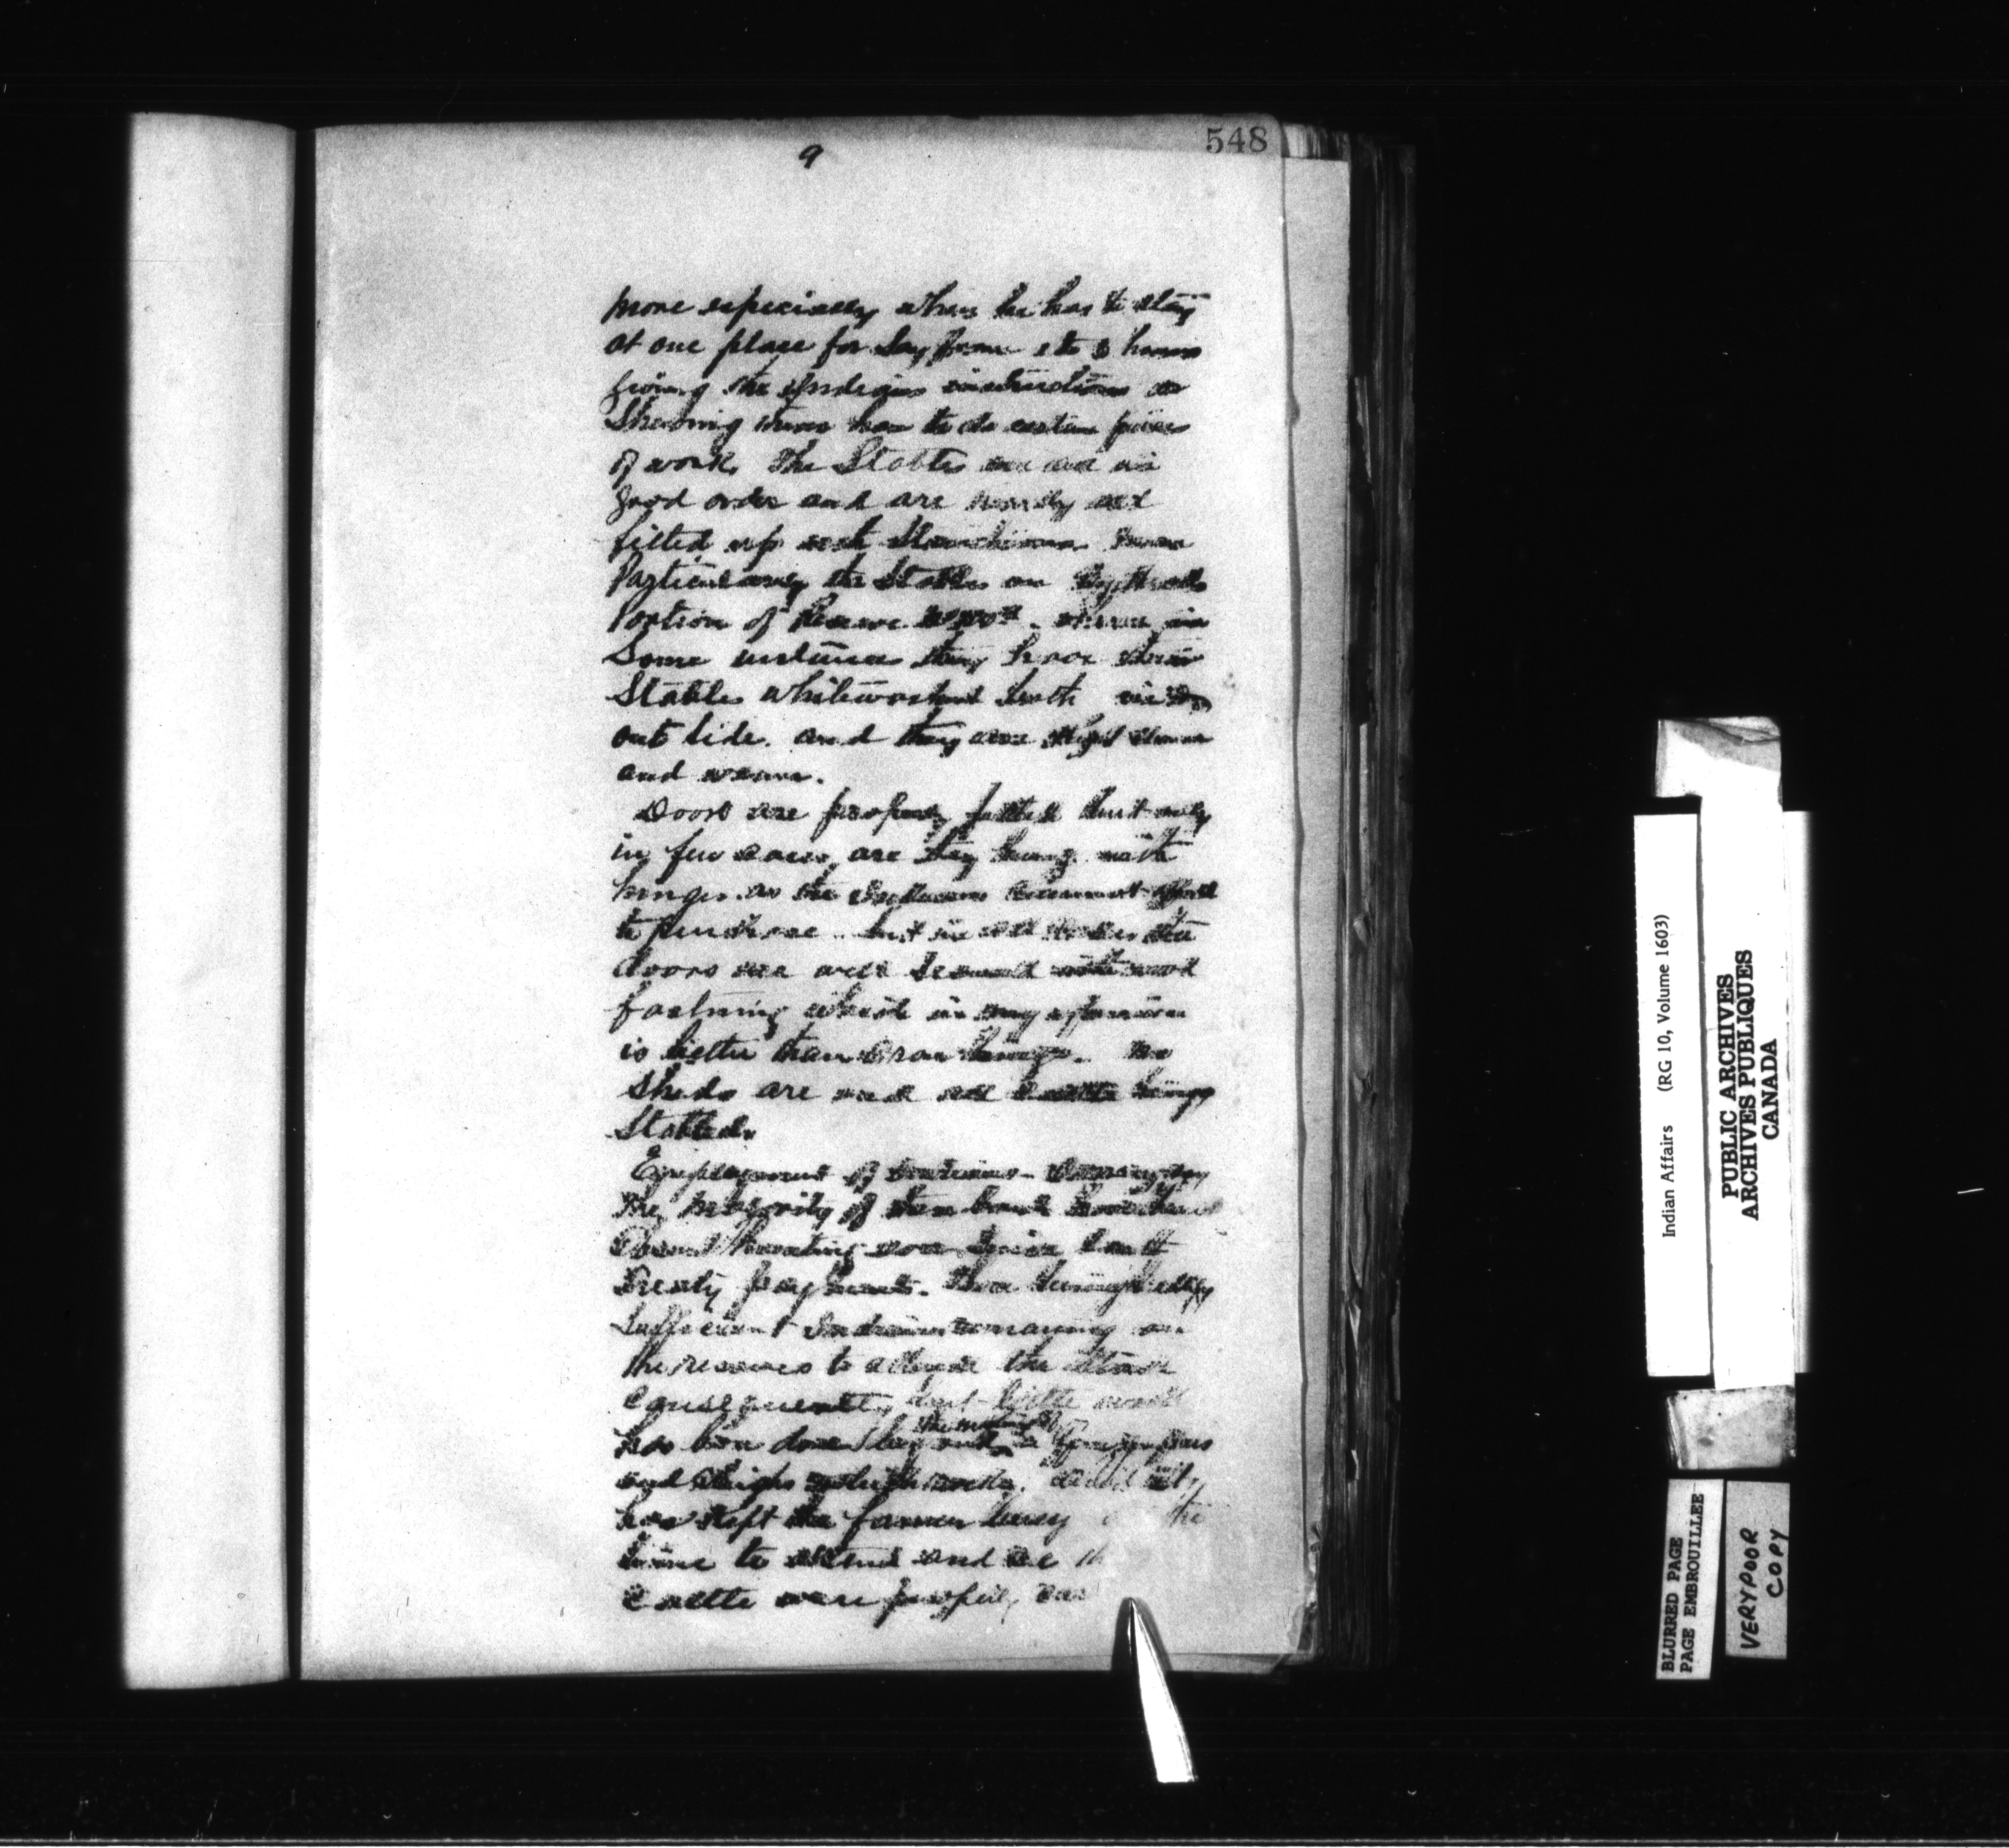 548
9
more especially when he has to stay
at one place for say from 2 to 3 hours
giving the Indians instructions or
Shewing them how to do certain pieces
of work. The Stables are all in
good order and are nearly all
fitted up with Stanchions more
Particularly the Stables on
Portion of Reserve where in
Some instances they have their
Stables whitewashed both in &
out side. and they are kept clean
and warm.
Doors are properly fitted but only
in few cases, are they hung with
hinges as the Indians cannot afford
to purchase but in all the
doors are well secured with wood
fastning which in my opinion
is better than Iron hinges. No
Sheds are used all Cattle being
Stabled.
Employment of Indians
The Majority of these bands have been
hunting ever since last
Treaty payments. there being only
Sufficient Indians remaining on
the reserves to attend the Stock
Consequently but little work
has been done beyond the making of
and Sleighs
has kept the farmer busy the
time to attend and see th
Cattle were properly
Indian Affairs (RG 10, Volume 1603)
PUBLIC ARCHIVES
ARCHIVES PUBLIQUES
CANADA
BLURRED PAGE
PAGE EMBROUILLEE
VERY POOR
COPY